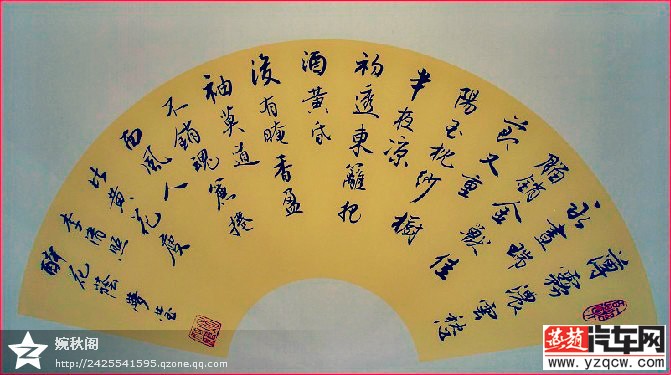 薄霧濃雲愁
永晝瑞
腦銷金獸佳
節又重
陽玉枕紗櫥
半夜涼
初透東籬把
酒黄昏
後有暗香盈
袖莫道
不銷魂簾捲
西風人
比黄花瘦
李清照
醉花蔭
婉秋阁
http://2425541595.qzone.qq.com
燕赵汽车网
www.yzqcw.com